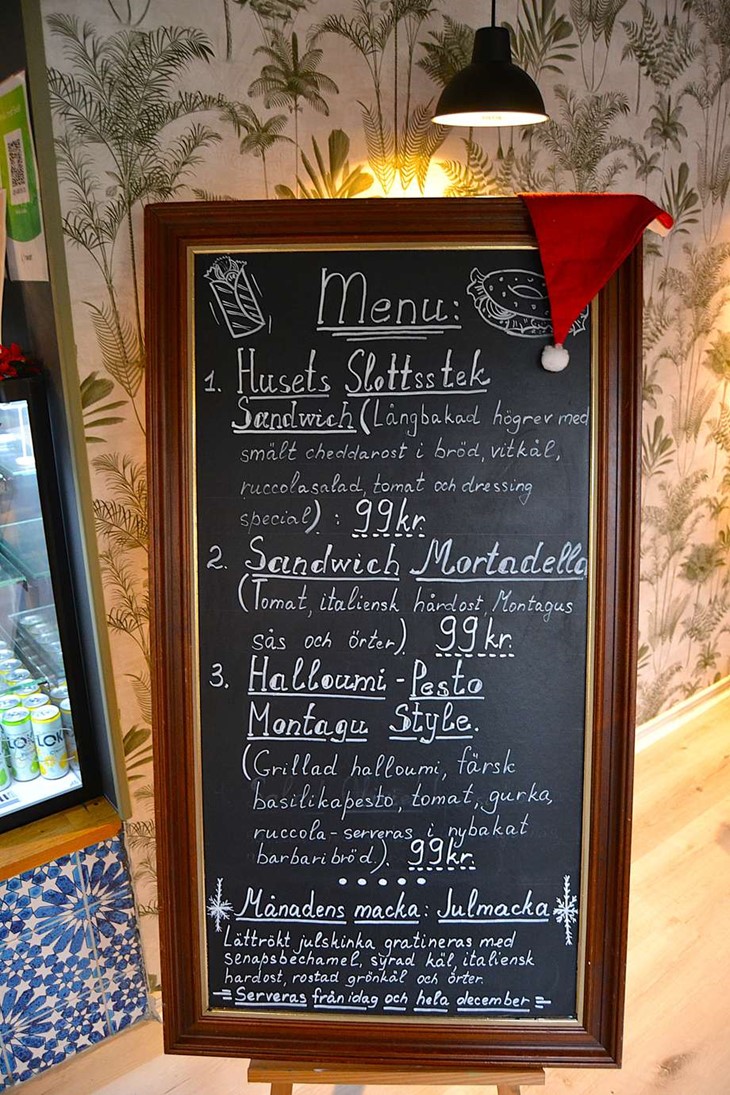 Menu:
1. Husets Slottsstek
Sandwich (Långbakad högrev med
smält cheddarost i bröd, vitkål,
ruccolasalad, tomat och dressing
special) : 99kr.
2. Sandwich Mortadella
(Tomat, italiensk hårdost, Montagus
sås och örter) 99kr.
3. Halloumi - Pesto
Montagu Style.
(Grillad halloumi, färsk
basilikapesto, tomat, gurka,
ruccola - serveras i nybakat
barbaribröd.) 99kr.
Månadens macka: Julmacka
Lättrökt julskinka gratineras med
senapsbechamel, syrad kål, italiensk
hardost, rostad grönkål och örter.
Serveras från idag och hela december
LOKA